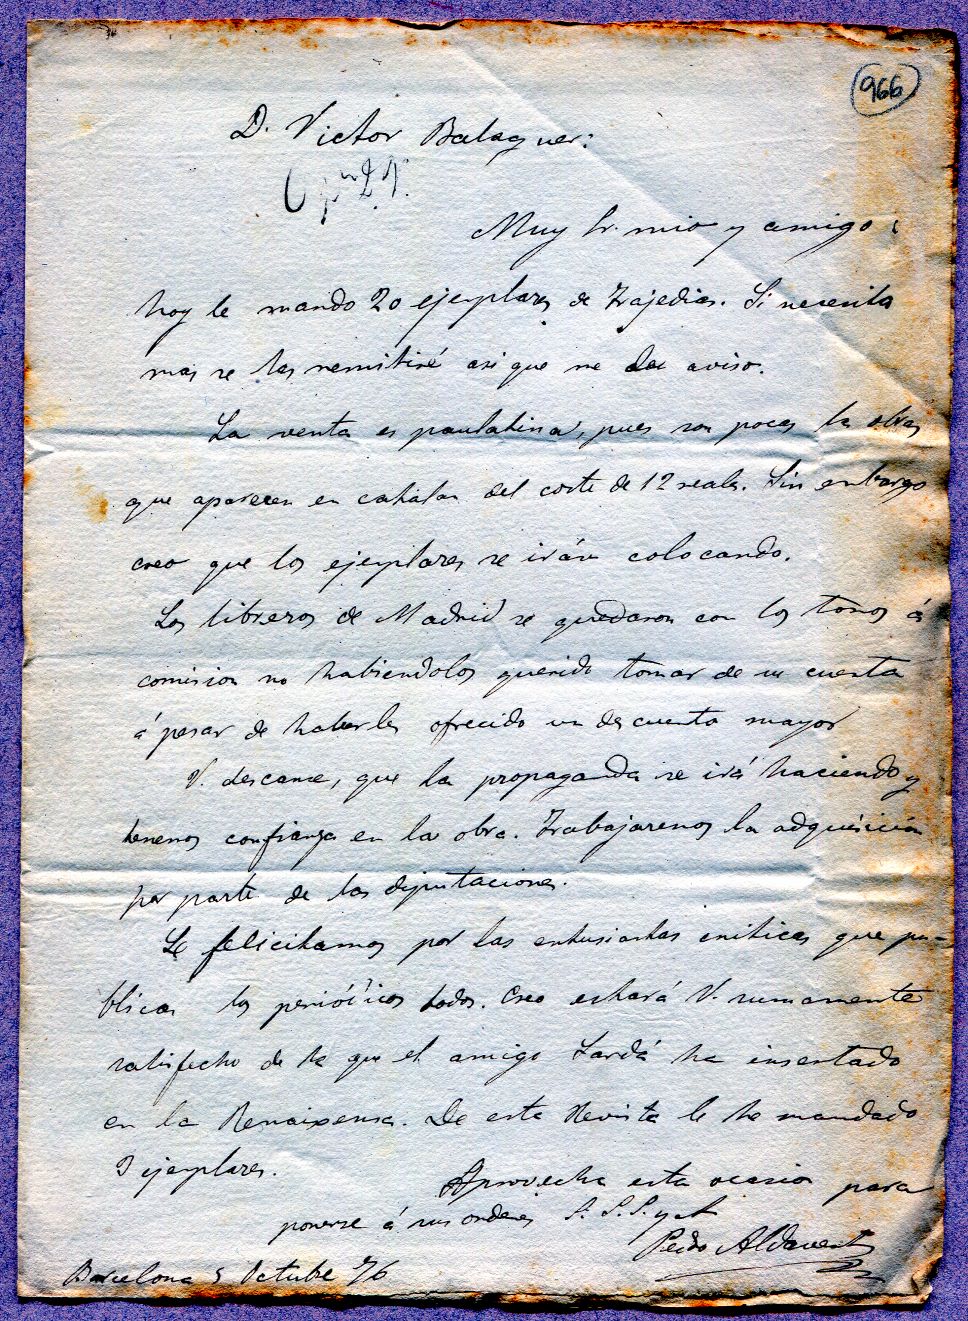 966
D. Victor Balaguer:
Muy Sr. mio y amigo:
hoy le mando 20 ejemplares de Trajedias. Si necesita
mas se las remitiré asi que me dé aviso.
La venta es paulatina, pues son pocas las obras
que aparecen en catalan del corte de 12 reales. Sin embargo
creo que los ejemplares se irán colocando.
Los libreros de Madrid se quedaron con los tomos á
comision no habiendolos querido tomar de su cuenta
á pesar de haberles ofrecido un descuento mayor
V. descanse, que la propaganda se irá haciendo y
tenemos confianza en la obra. Trabajaremos la adquisicion
por parte de las diputaciones.
Le felicitamos por las entusiastas criticas que pu-
blican los periódicos todos. Creo estará V. sumamente
satisfecho de la que el amigo Sardá ha insertado
en la Renaixensa. De esta Revista le he mandado
3 ejemplares.
Aprovecha esta ocasion para
ponerse á sus ordenes S. S. S. y A
Pedro Aldavert
Barcelona 5 Octubre 76